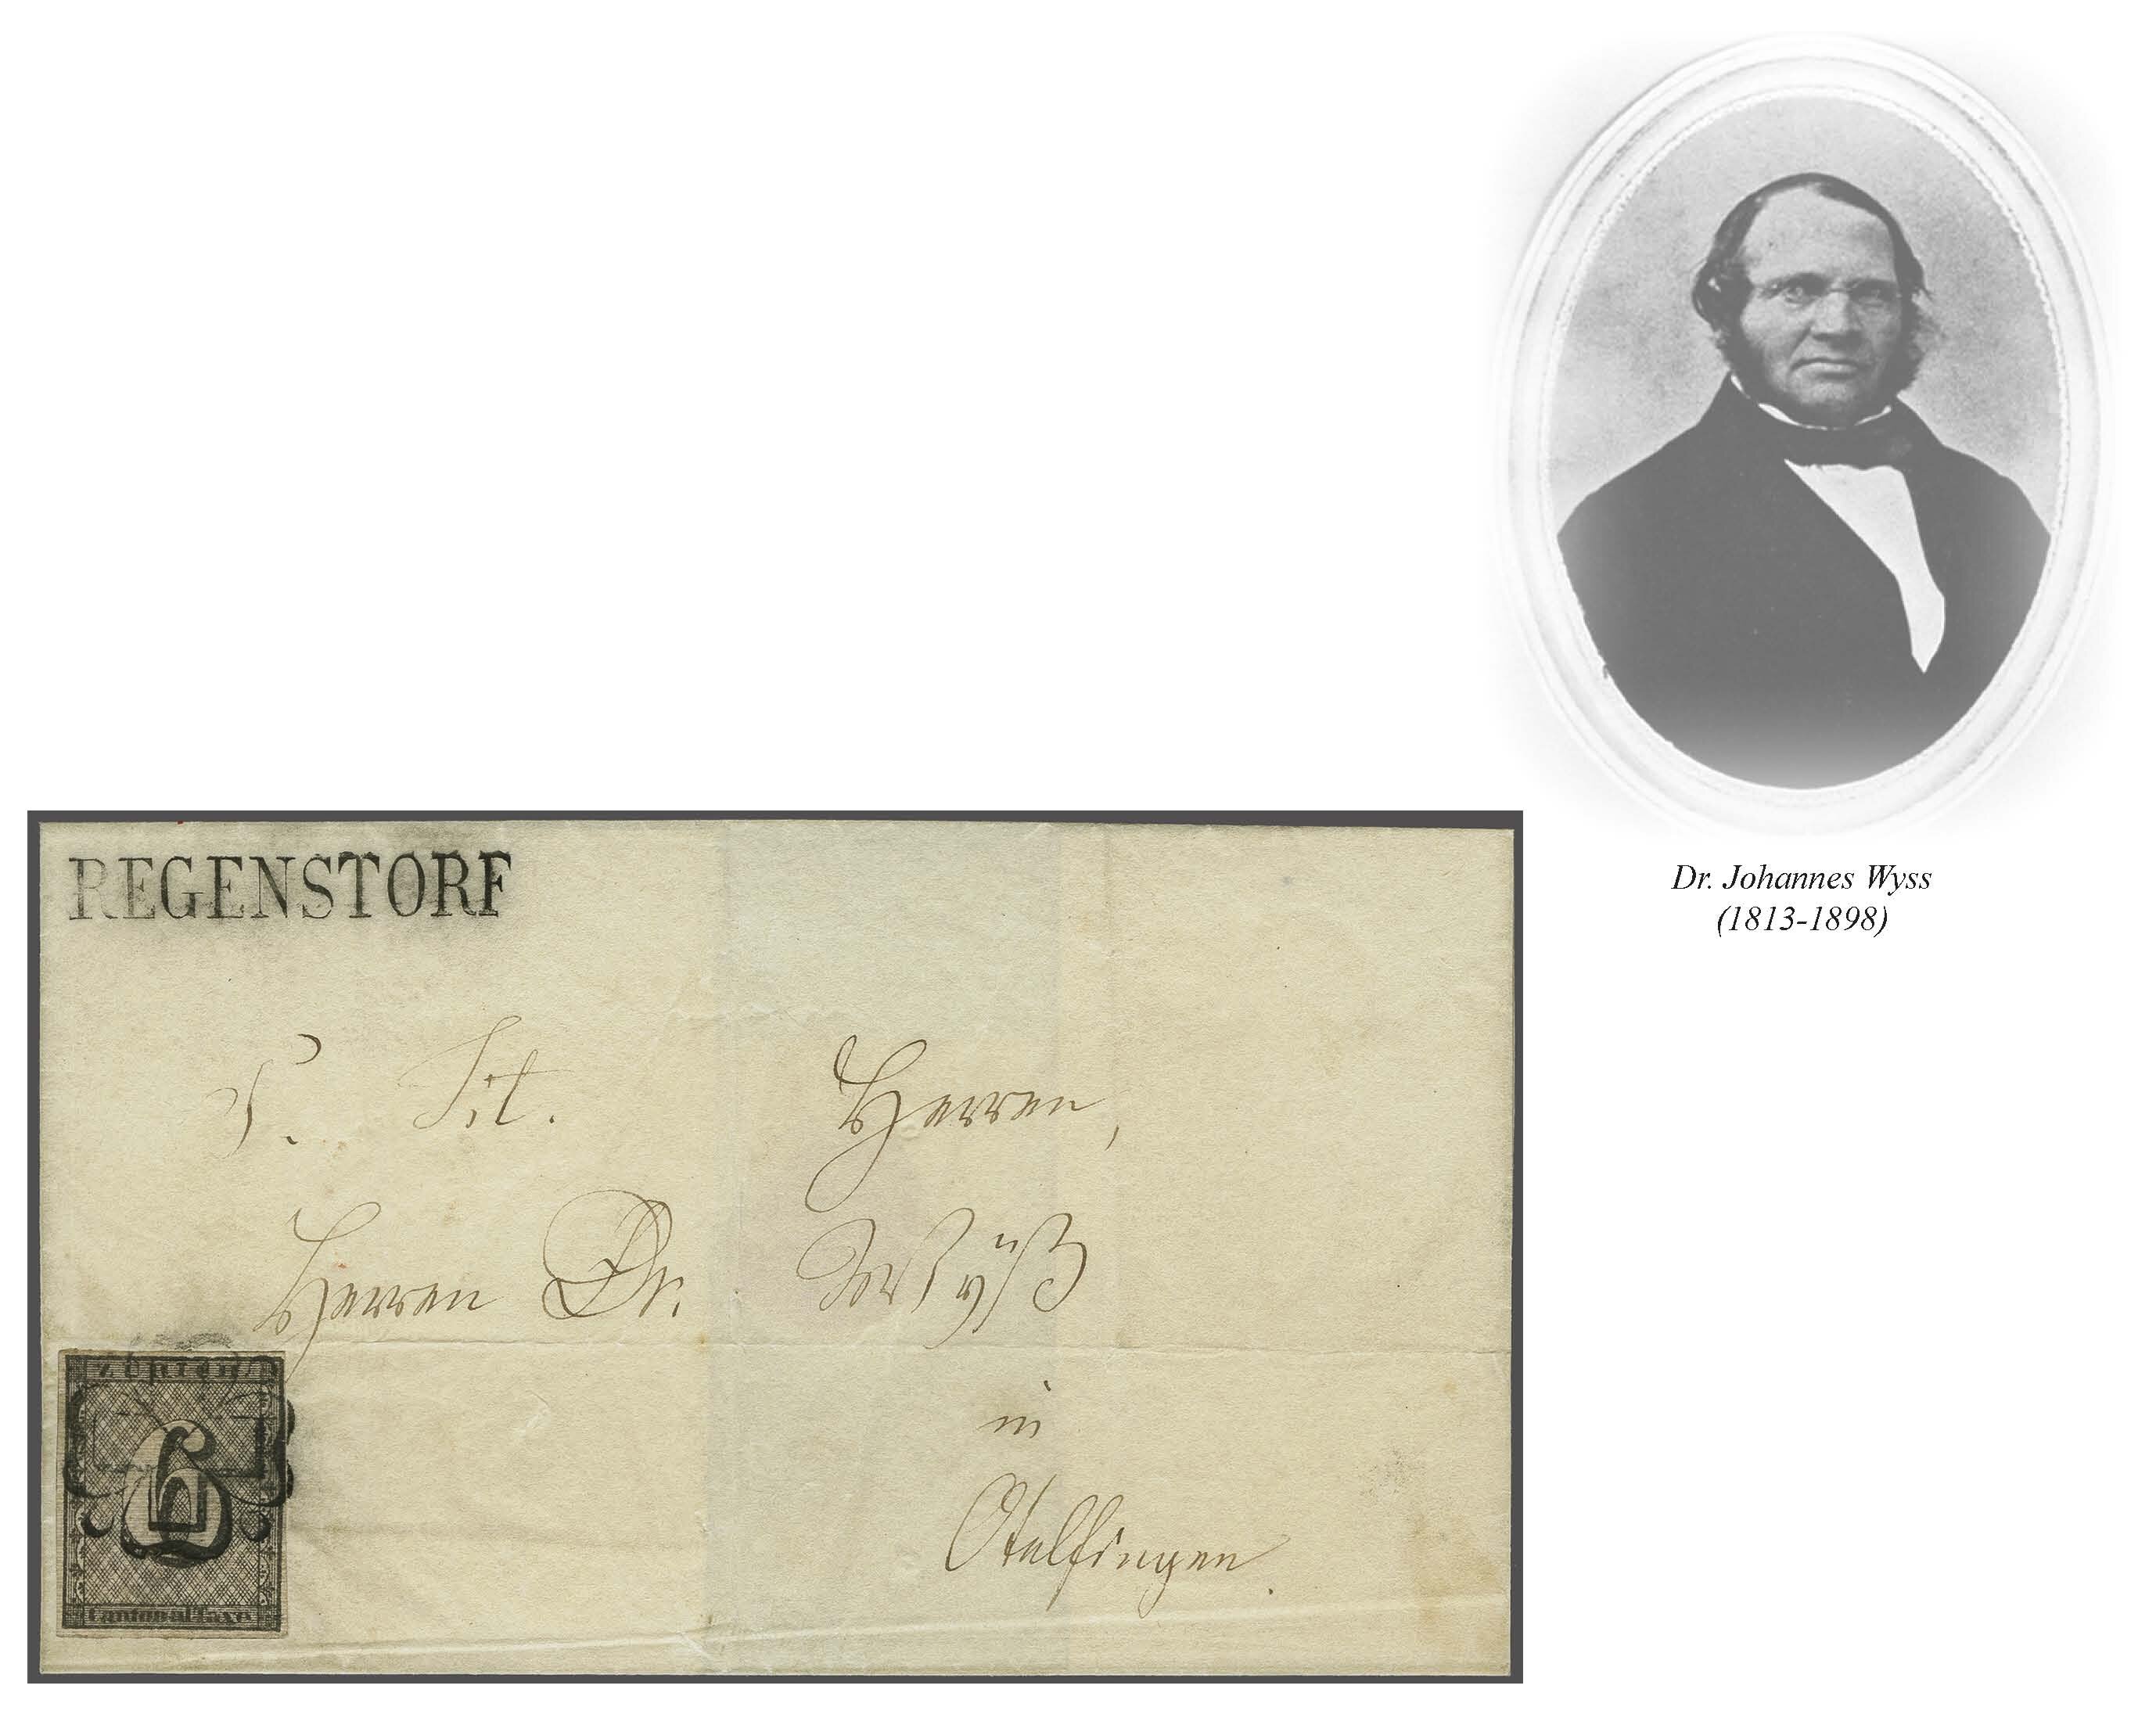 Dr. Johannes Wyss
(1813-1898)
REGENSTORF
S. Tit. Herren,
Herren Dr. Wÿß
in
Otelfingen.
Zürich
6
Cantonal-Taxe